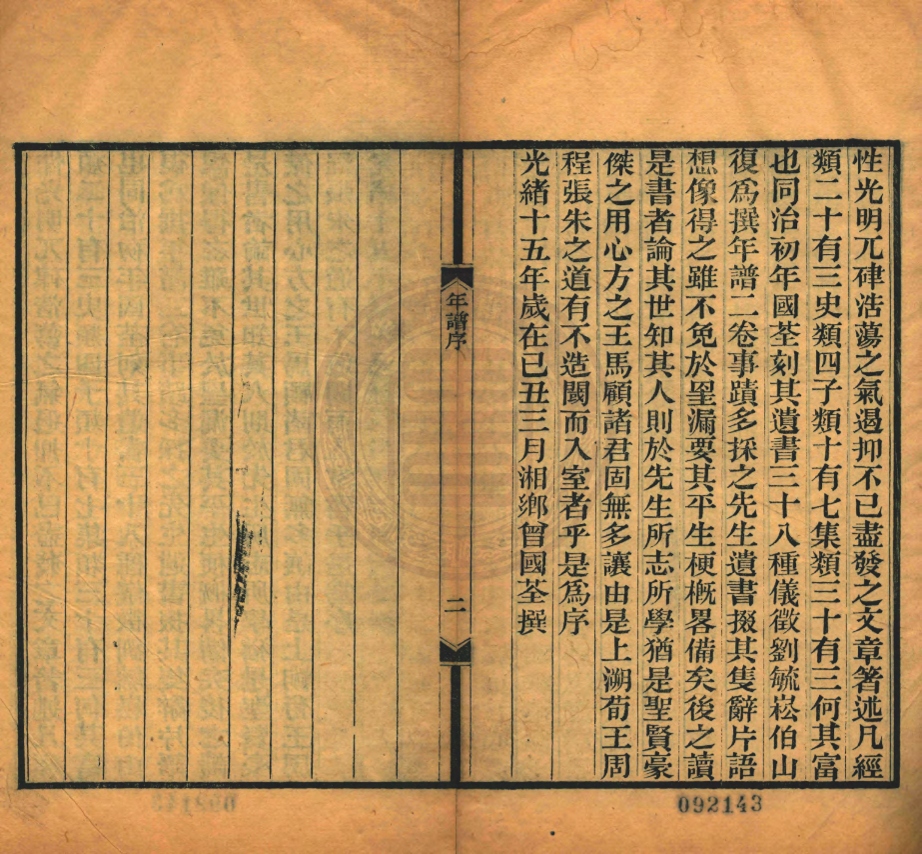 性光明兀硉浩蕩之氣遏抑不已盡發之文章箸述凡經
類二十有三史類四子類十有七集類三十有三何其富
也同治初年國荃刻其遺書三十八種儀徵劉毓崧伯山
復爲撰年譜二卷事蹟多採之先生遺書掇其隻辭片語
想像得之雖不免於罣漏要其平生梗概畧備矣後之讀
是書者論其世知其人則於先生所志所學猶是聖賢豪
傑之用心方之王馬顧諸君固無多讓由是上溯荀王周
程張朱之道有不造闑而入室者乎是爲序
光緒十五年歲在己丑三月湘鄉曾國荃撰
年譜序
二
092143